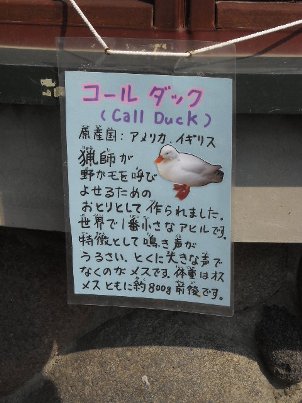 コール ダック
(Call Duck)
原産国:アメリカ、イギリス
猟師が
野がモを呼び
よせるための
おとりとして 作られました。
世界で1番小さなアヒルです。
特徴として 鳴き声が
うるさい、とくに大きな声で
なくのが メスです。体重はオス
メス ともに約800g 前後です。